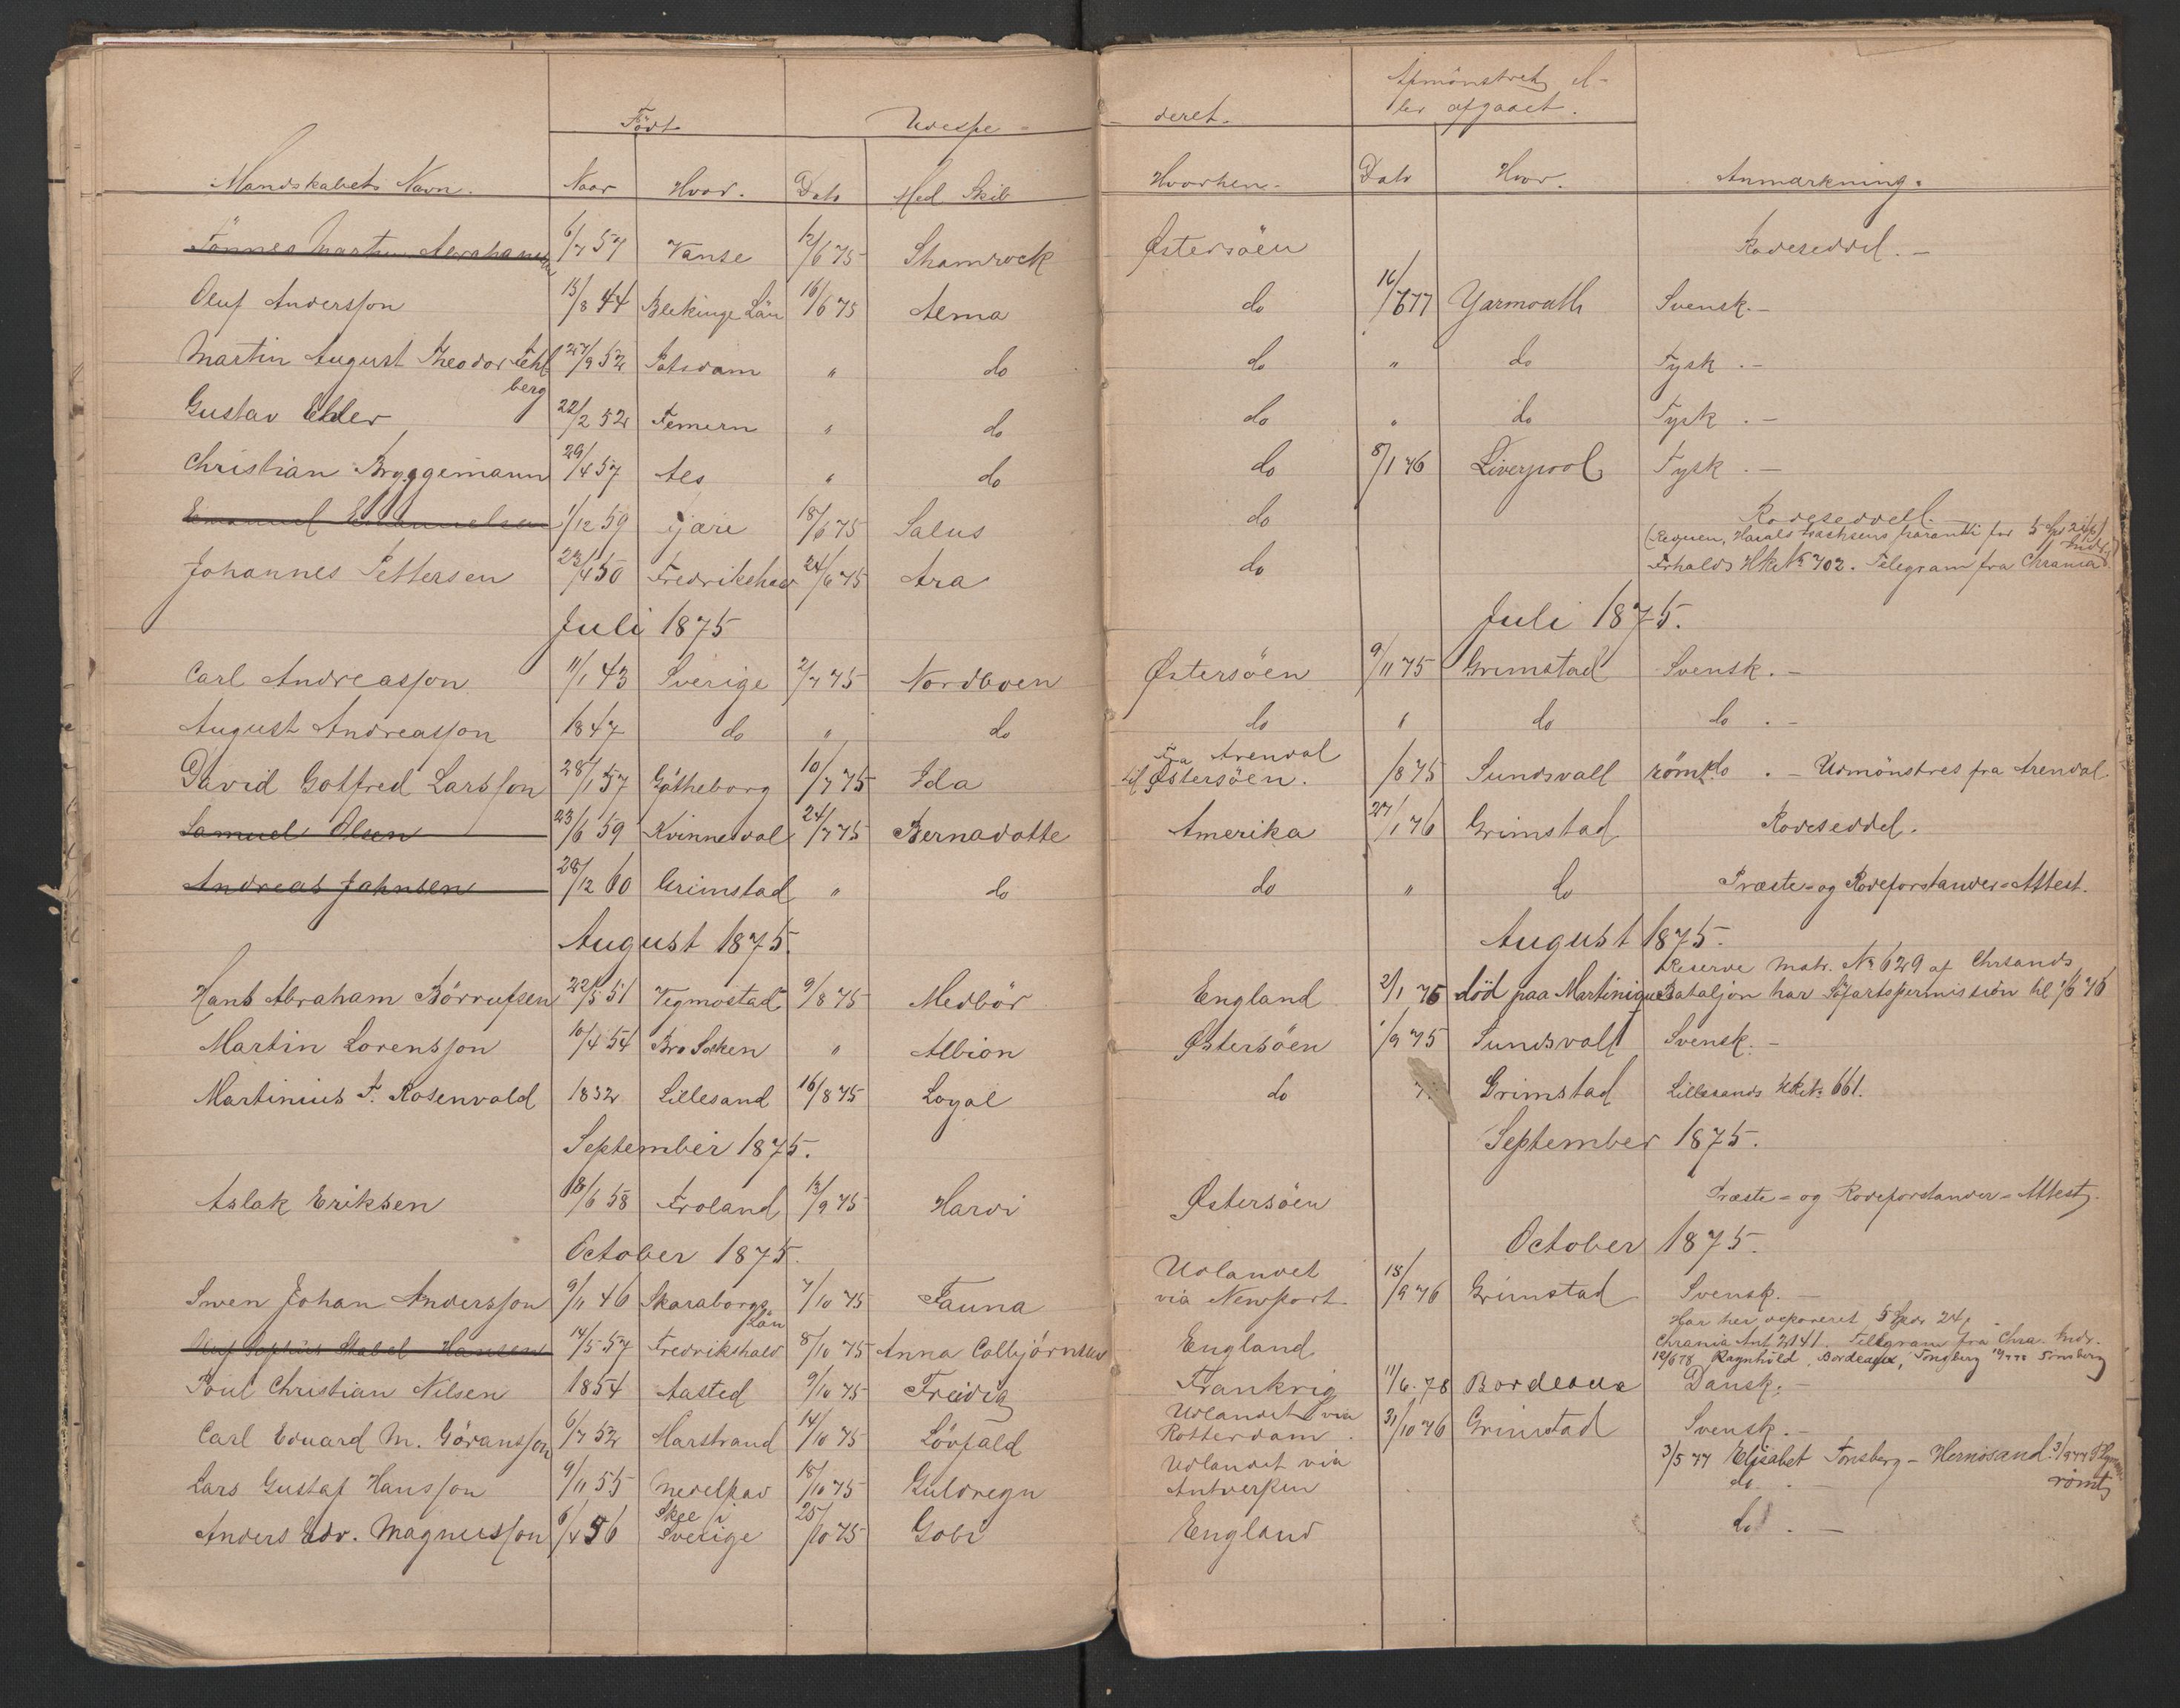 Født Udexpe-
Mandskabets Navn. Naar Hvor. Dato Med Skib
Tønnes Martin Abrahamsen 6/7 57 Vanse 12/6 75 Shamrock
Oluf Andersson 15/8 44 Blekinge Län 16/6 75 Alma
Martin August Theodor Fehl 27/9 52 Potsdam " do
berg
Gustav Ehler 22/2 52 Femern " do
Christian Bryggemann 29/4 57 Aes " do
Emanuel Emanuelsen 1/12 59 Fjære 18/6 75 Salus
Johannes Pettersen 23/4 50 Fredrikshald 24/6 75 Ara
Juli 1875
Carl Andreasson 11/1 43 Sverige 2/7 75 Nordboen
August Andreasson 1847 do " do
David Gotfred Larsson 28/1 57 Gøtheborg 10/7 75 Ida
Samuel Olsen 23/6 59 Kvinnesdal 24/7 75 Bernadotte
Andreas Jahnsen 28/12 60 Grimstad " do
August 1875.
Hans Abraham Børrufsen 22/5 51 Vegmostad 9/8 75 Medbør
Martin Lorensson 10/4 54 Bro Socken " Albion
Martinius F. Rosenvold 1832 Lillesand 16/8 75 Loyal
September 1875.
Aslak Eriksen 18/6 58 Froland 13/9 75 Hardi
October 1875.
Swen Johan Andersson 9/11 46 Skaraborgs 7/10 75 Fauna
Län
Oluf Sophus Stabel Hansen 14/5 57 Fredrikshald 8/10 75 Anna Colbjørnsen
Poul Christian Nilsen 1854 Aasted 9/10 75 Freidig
Carl Eduard M. Göransson 6/7 52 Marstrand 14/10 75 Løvfald
Lars Gustaf Hansson 9/11 55 Medelpad 18/10 75 Guldregn
Skee i
Anders Edv. Magnusson 6/4 56 Sverige 25/10 75 Gobi
Afmønstret el-
deret. ler afgaaet.
Hvorhen. Dato Hvor. Anmærkning.
Østersøen Rodeseddel. -
do 16/6 77 Yarmouth Svensk. -
do " do Tysk. -
do " do Tysk. -
do 8/1 76 Liverpool Tysk. -
do Rodeseddel.
do Frhalds HkNo 702. Telegram fra Chrania
Juli 1875.
Østersøen 9/11 75 Grimstad Svensk. -
do " do do. -
Fra Arendal
til Østersøen. /8 75 Sundsvall rømt do. - Udmønstres fra Arendal
Amerika 27/1 76 Grimstad Rodeseddel.
do " do Præste- og Rodeforstander-Attest.
August 1875.
Reserve Matr. No 629 af Chrsands
England 2/1 76 død paa Martinique Bataljon har Søfartspermission til 1/6 76
Østersøen 1/9 75 Sundsvall Svensk. -
do Grimstad Lillesands HkNo 661.
September 1875.
Østersøen Præste- og Rodeforstander-Attest.
October 1875.
Udlandet
via Newport. 15/9 76 Grimstad Svensk. -
Har her deponeret 5 Spdr 24
England Chrania Ant 2141. Telegram fra Chra. Indr.
12/6 78 Ragnhild, Bordeaux, Tonsberg
Frankrig 11/6. 78 Bordeaux Dansk. -
Udlandet via
Rotterdam. 31/10 76 Grimstad Svensk. -
Udlandet via 3/5 77 Elisabet Tonsberg - Hernösand.
Antwerpen do. - rømt
England do. -